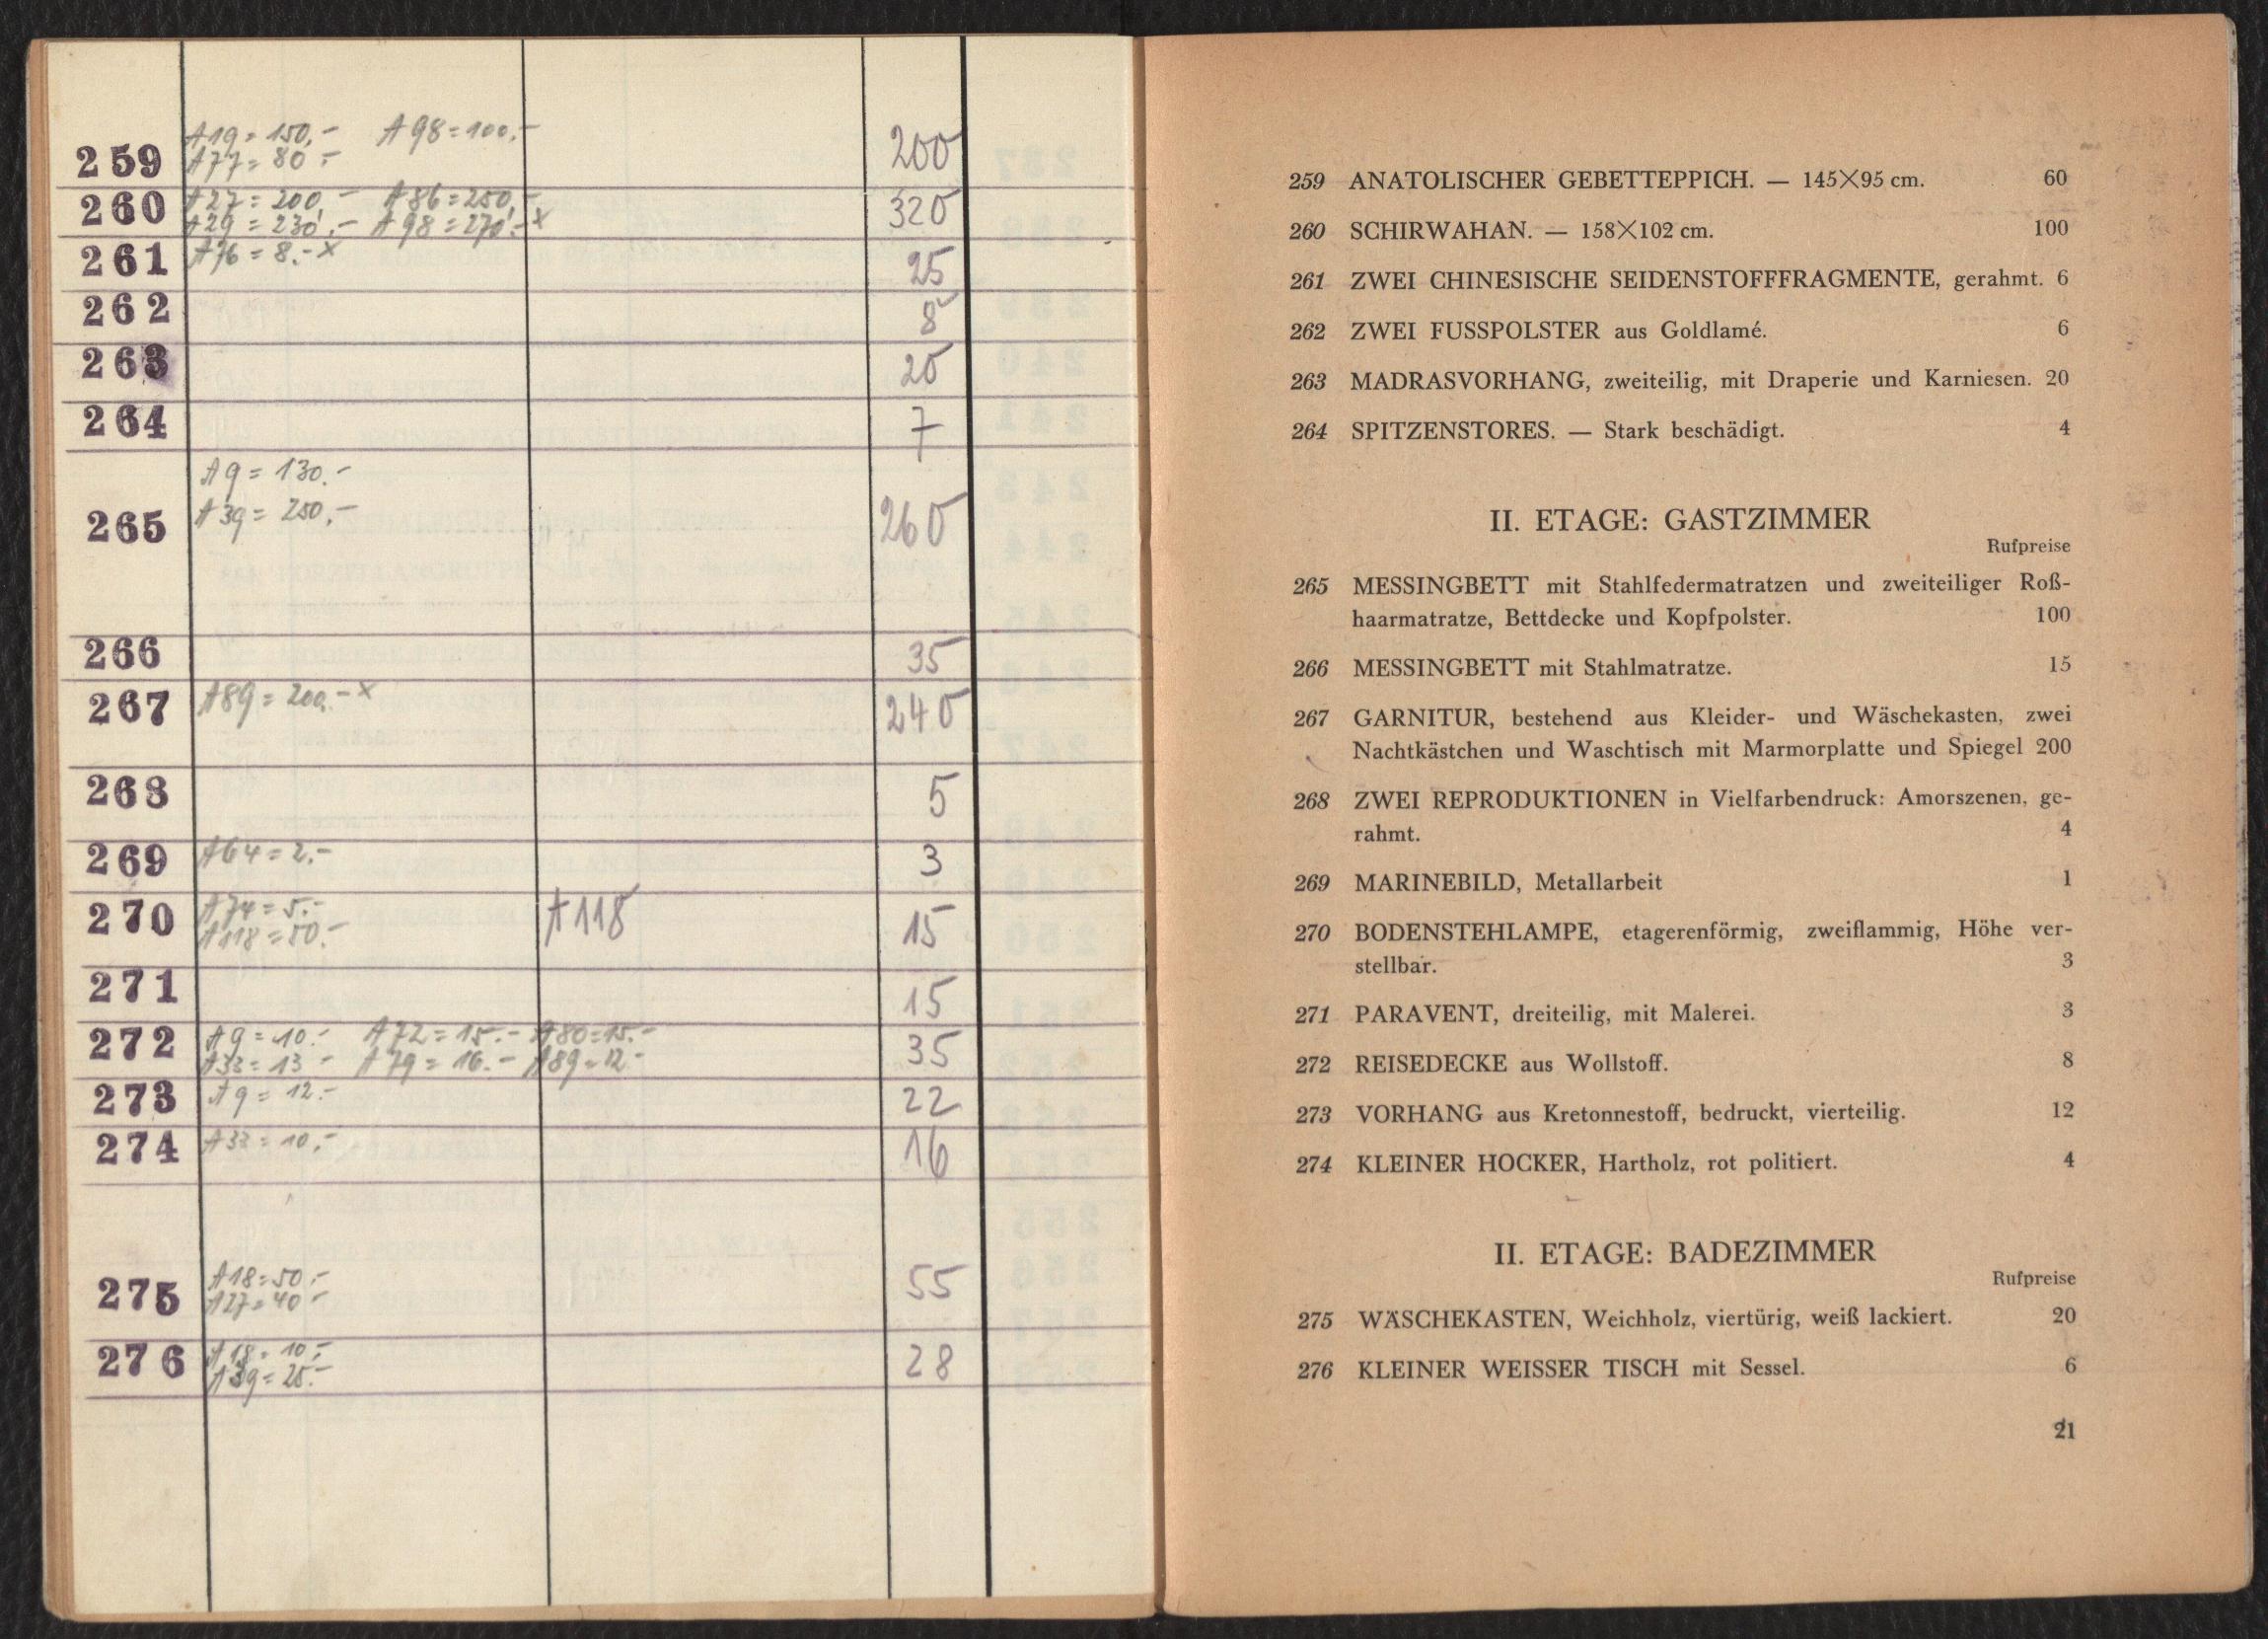 259 A19 = 150.- A98 = 100.- 200
A77 = 80.-
260 A27 = 200.- A86 = 250.- 320
A29 = 230.- A98 = 270.- x
261 A76 = 8.- x 25
262 8
263 20
264 7
A9 = 130.-
265 A39 = 250.- 260
266 35
267 A89 = 200.- x 240
268 5
269 A64 = 2.- 3
270 A74 = 5.- A118 15
A118 = 50.-
271 15
272 A9 = 10.- A72 = 15.- A80 = 15.- 35
A33 = 13.- A79 = 16.- A89 = 12.-
273 A9 = 12.- 22
274 A33 = 10.- 16
275 A18 = 50.- 55
A27 = 40.-
276 A18 = 10.- 28
A39 = 25.-
259 ANATOLISCHER GEBETTEPPICH. — 145×95 cm. 60
260 SCHIRWAHAN. — 158×102 cm. 100
261 ZWEI CHINESISCHE SEIDENSTOFFFRAGMENTE, gerahmt. 6
262 ZWEI FUSSPOLSTER aus Goldlamé. 6
263 MADRASVORHANG, zweiteilig, mit Draperie und Karniesen. 20
264 SPITZENSTORES. — Stark beschädigt. 4
II. ETAGE: GASTZIMMER
Rufpreise
265 MESSINGBETT mit Stahlfedermatratzen und zweiteiliger Roß-
haarmatratze, Bettdecke und Kopfpolster. 100
266 MESSINGBETT mit Stahlmatratze. 15
267 GARNITUR, bestehend aus Kleider- und Wäschekasten, zwei
Nachtkästchen und Waschtisch mit Marmorplatte und Spiegel 200
268 ZWEI REPRODUKTIONEN in Vielfarbendruck: Amorszenen, ge-
rahmt. 4
269 MARINEBILD, Metallarbeit 1
270 BODENSTEHLAMPE, etagerenförmig, zweiflammig, Höhe ver-
stellbar. 3
271 PARAVENT, dreiteilig, mit Malerei. 3
272 REISEDECKE aus Wollstoff. 8
273 VORHANG aus Kretonnestoff, bedruckt, vierteilig. 12
274 KLEINER HOCKER, Hartholz, rot politiert. 4
II. ETAGE: BADEZIMMER
Rufpreise
275 WÄSCHEKASTEN, Weichholz, viertürig, weiß lackiert. 20
276 KLEINER WEISSER TISCH mit Sessel. 6
21